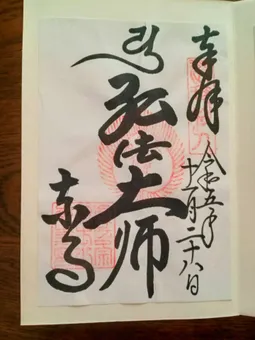 奉拝
令和五年十一月二十八日
弘法大師
東寺